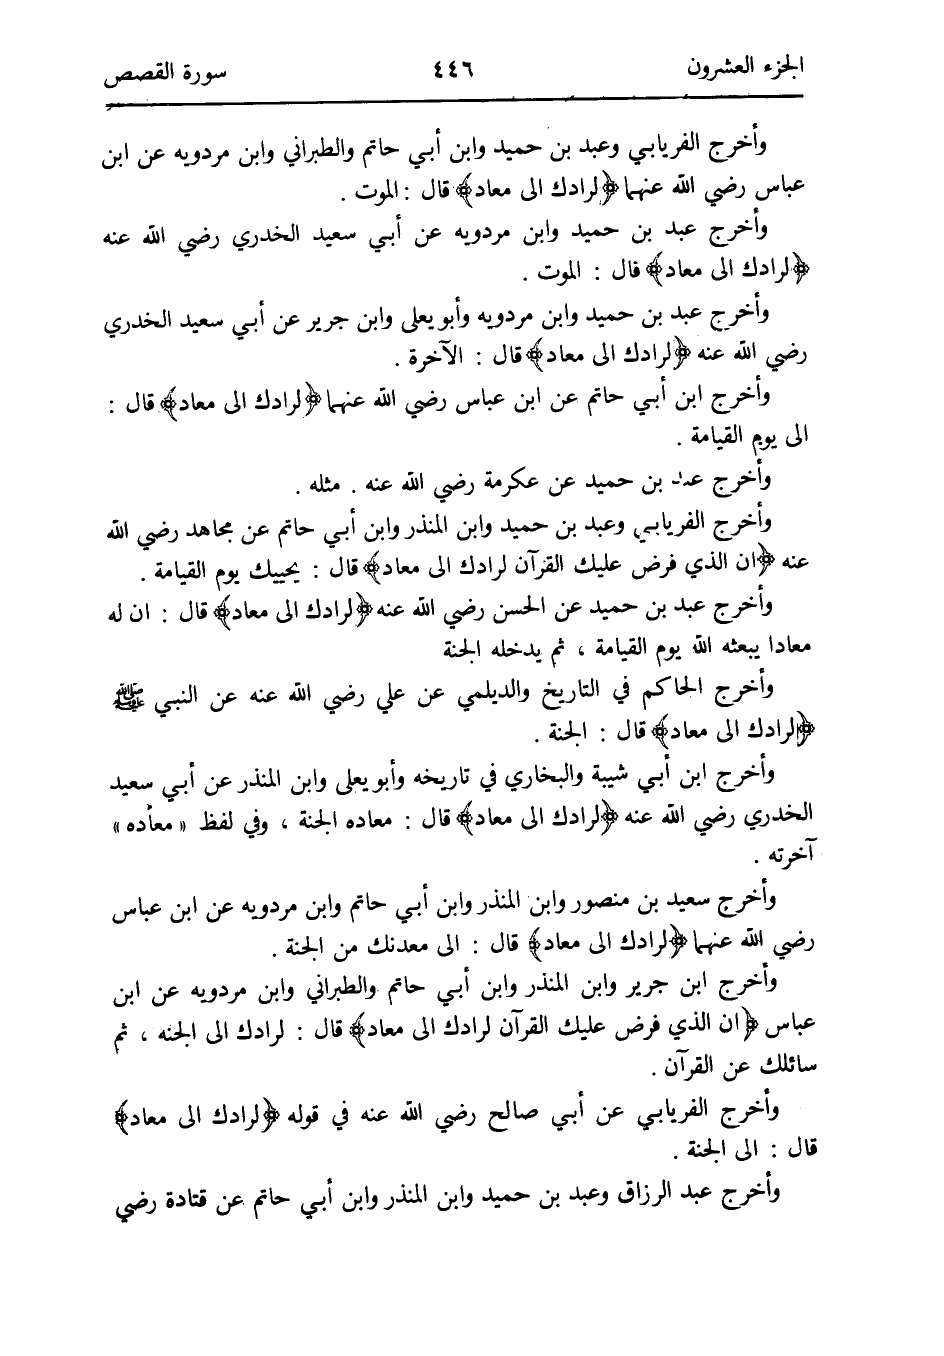 الجزء العشرون ٤٤٦ سورة القصص
وأخرج الفريابي وعبد بن حميد وابن أبي حاتم والطبراني وابن مردويه عن ابن
عباس رضي الله عنهما ﴿لرادك الى معاد﴾ قال : الموت .
وأخرج عبد بن حميد وابن مردويه عن أبي سعيد الخدري رضي الله عنه
﴿لرادك الى معاد﴾ قال : الموت .
وأخرج عبد بن حميد وابن مردويه وأبو يعلى وابن جرير عن أبي سعيد الخدري
رضي الله عنه ﴿لرادك الى معاد﴾ قال : الآخرة .
وأخرج ابن أبي حاتم عن ابن عباس رضي الله عنهما ﴿لرادك الى معاد﴾ قال :
الى يوم القيامة .
وأخرج عبد بن حميد عن عكرمة رضي الله عنه . مثله .
وأخرج الفريابي وعبد بن حميد وابن المنذر وابن أبي حاتم عن مجاهد رضي الله
عنه ﴿ان الذي فرض عليك القرآن لرادك الى معاد﴾ قال : يحييك يوم القيامة .
وأخرج عبد بن حميد عن الحسن رضي الله عنه ﴿لرادك الى معاد﴾ قال : ان له
معادا يبعثه الله يوم القيامة ، ثم يدخله الجنة
وأخرج الحاكم في التاريخ والديلمي عن علي رضي الله عنه عن النبي ﷺ
﴿لرادك الى معاد﴾ قال : الجنة .
وأخرج ابن أبي شيبة والبخاري في تاريخه وأبو يعلى وابن المنذر عن أبي سعيد
الخدري رضي الله عنه ﴿لرادك الى معاد﴾ قال : معاده الجنة ، وفي لفظ « معأده »
آخرته .
وأخرج سعيد بن منصور وابن المنذر وابن أبي حاتم وابن مردويه عن ابن عباس
رضي الله عنهما ﴿لرادك الى معاد﴾ قال : الى معدنك من الجنة .
وأخرج ابن جرير وابن المنذر وابن أبي حاتم والطبراني وابن مردويه عن ابن
عباس ﴿ان الذي فرض عليك القرآن لرادك الى معاد﴾ قال : لرادك الى الجنه ، ثم
سائلك عن القرآن .
وأخرج الفريابي عن أبي صالح رضي الله عنه في قوله ﴿لرادك الى معاد﴾
قال : الى الجنة .
وأخرج عبد الرزاق وعبد بن حميد وابن المنذر وابن أبي حاتم عن قتادة رضي